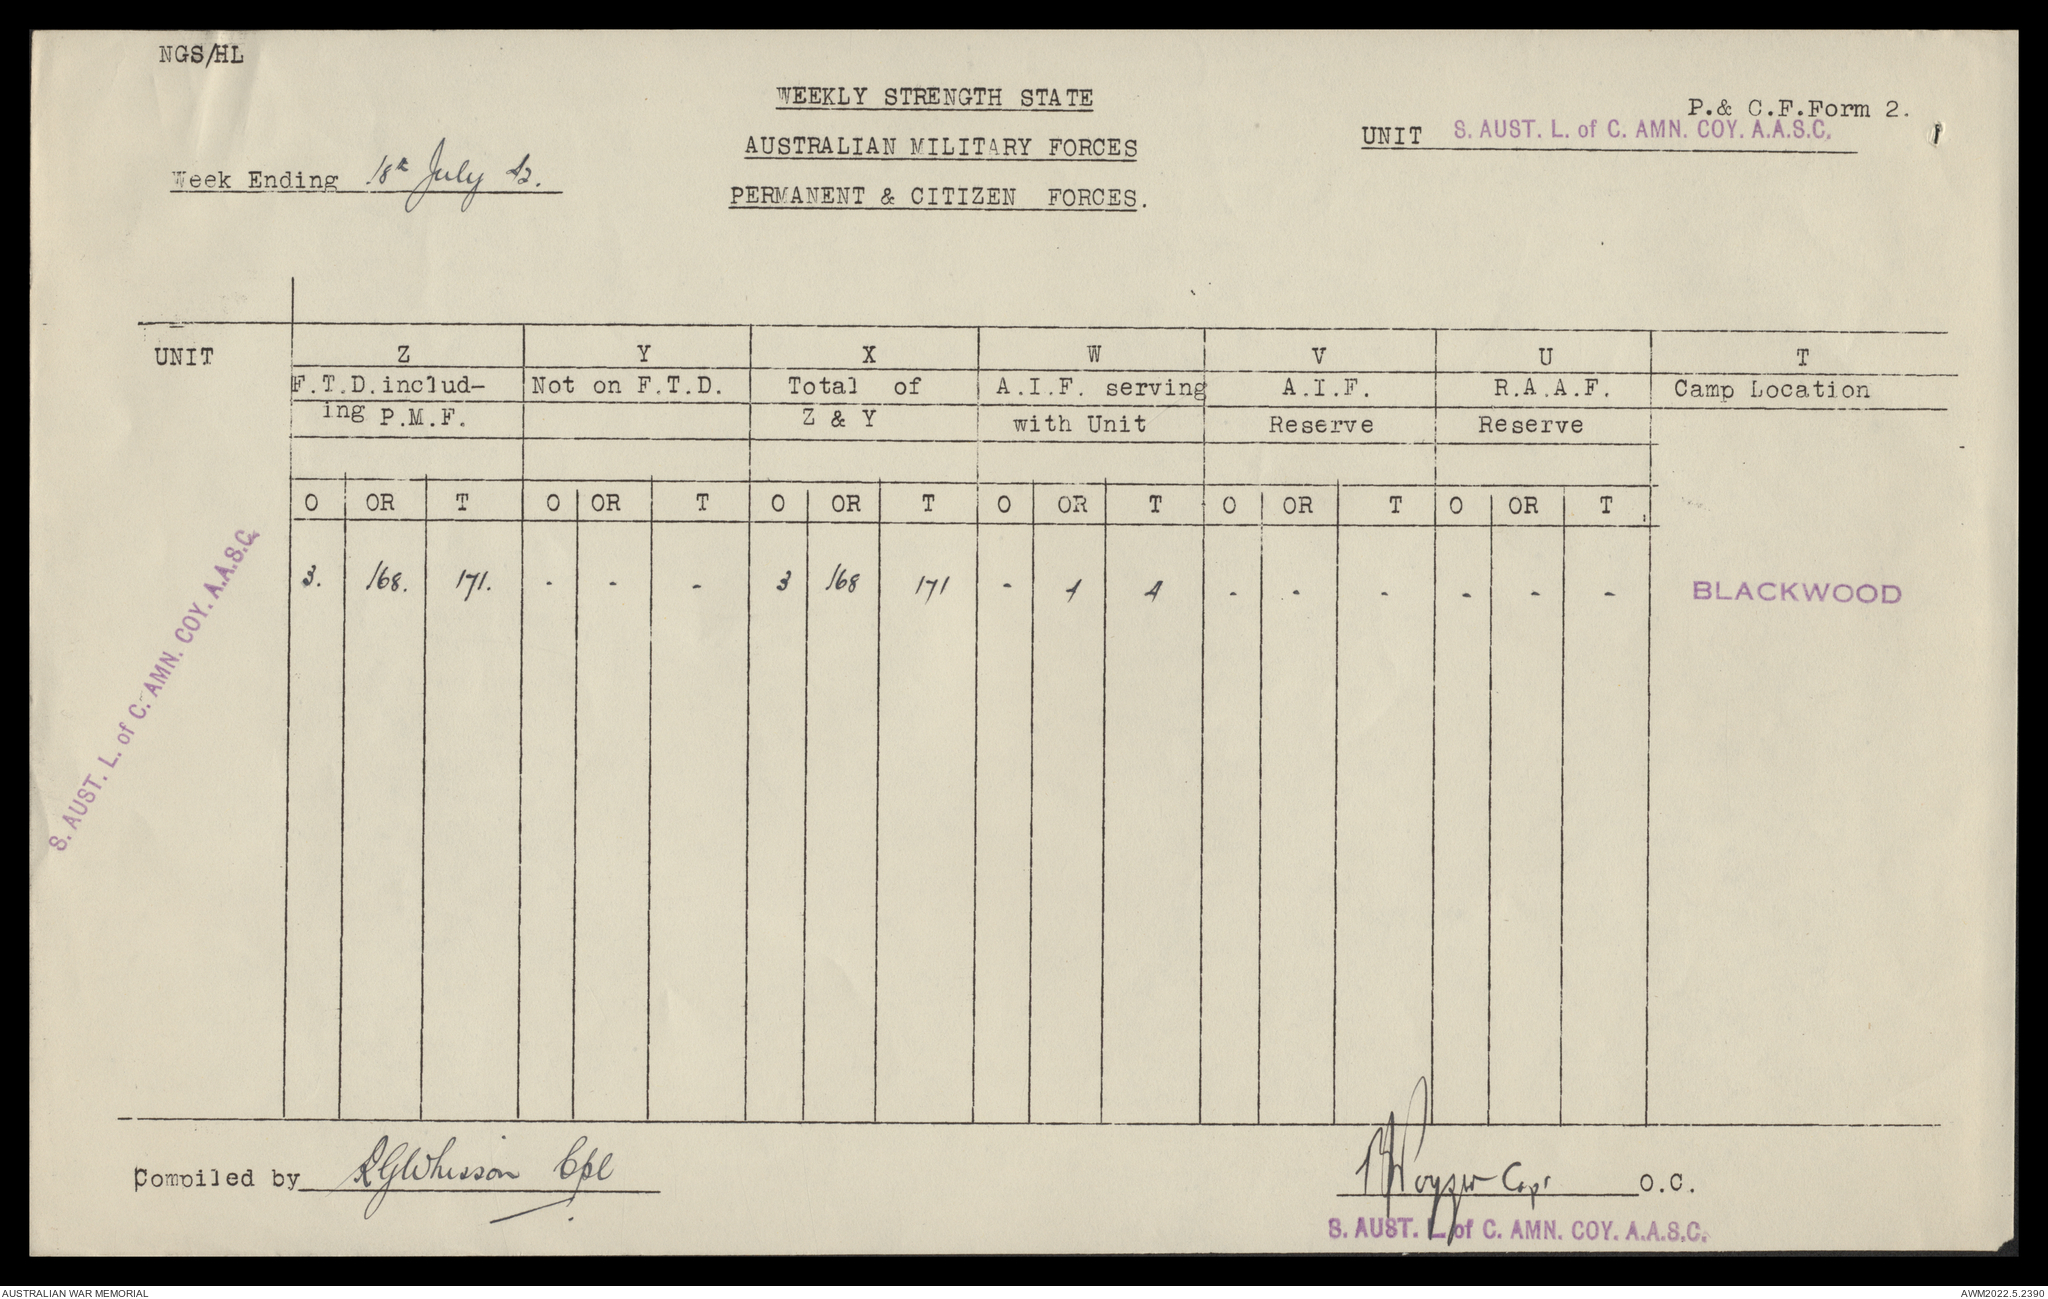 NGS/HL
WEEKLY STRENGTH STATE
P.& C.F.Form 2.
UNIT S. AUST. L. of C. AMN. COY. A.A.S.C.
AUSTRALIAN MILITARY FORCES
Week Ending 18th July 42.
PERMANENT & CITIZEN FORCES.
UNIT Z Y X W V U T
F.T.D.includ- Not on F.T.D. Total of A.I.F. serving A.I.F. R.A.A.F. Camp Location
ing P.M.F. Z & Y with Unit Reserve Reserve
O OR T O OR T O OR T O OR T O OR T O OR T
S. AUST. L. of C. AMN. COY. A.A.S.C.
3. 168. 171. - - - 3 168 171 - 4 4 - - - - - - BLACKWOOD
Compiled by RGWhisson Cpl
Capt O.C.
S. AUST. L. of C. AMN. COY. A.A.S.C.
AUSTRALIAN WAR MEMORIAL
AWM2022.5.2390